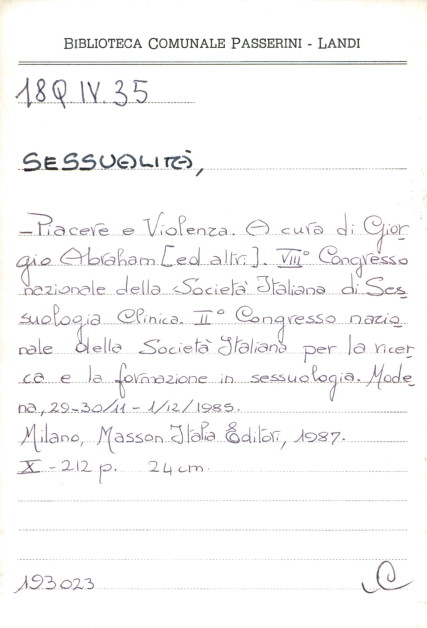 BIBLIOTECA COMUNALE PASSERINI - LANDI
18Q IV.35
SESSUALITÀ,
-Piacere e Violenza. A cura di Gior
gio Abraham [ed altri]. VIII° Congresso
nazionale della Società Italiana di Ses
suologia Clinica. II° Congresso nazio
nale della Società Italiana per la ricer
ca e la formazione in sessuologia. Mode
na, 29-30/11 - 1/12/1985.
Milano, Masson Italia Editori, 1987.
X - 212 p. 24 cm.
193023